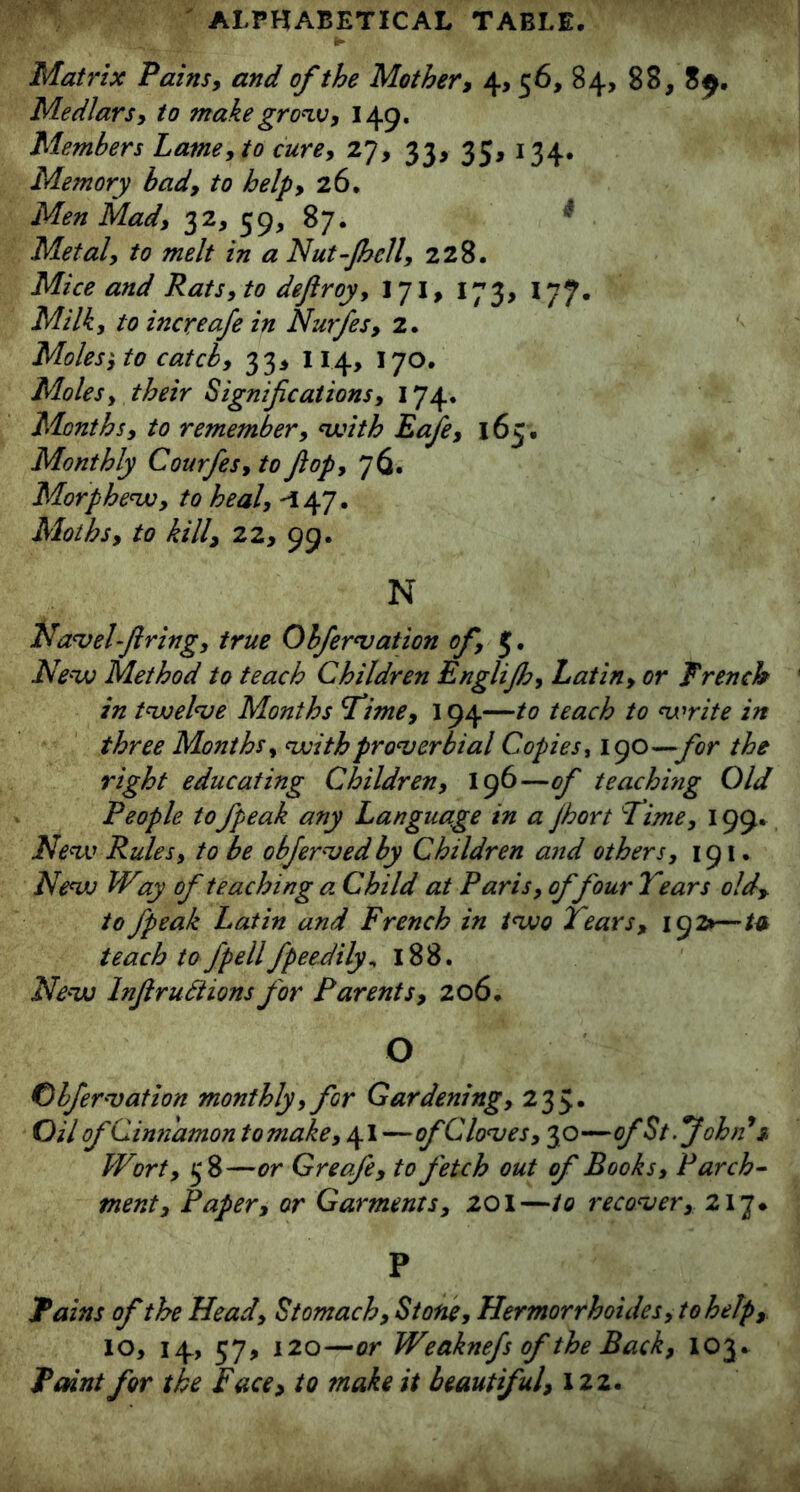 ALPHABETICAL TABLE.
Matrix Pains, and of the Mother, 4, 56, 84, 88, 89.
Medlars, to make grow, 149.
Members Lame, to cure, 27, 33, 35, 134.
Memory bad, to help, 26.
Men Mad, 32, 59, 87.
Metal, to melt in a Nut-ſhell, 228.
Mice and Rats, to deſtroy, 171, 173, 177.
Milk, to increaſe in Nurſes, 2.
Moles, to catch, 33, 114, 170.
Moles, their Significations, 174.
Months, to remember, with Eaſe, 165.
Monthly Courſes, to ſtop, 76.
Morphew, to heal, 147.
Moths, to kill, 22, 99.
N
Navel-ſtring, true Obſervation of, 5.
New Method to teach Children Engliſh, Latin, or French
in twelve Months Time, 194—to teach to write in
three Months, with proverbial Copies, 190—for the
right educating Children, 196—of teaching Old
People to ſpeak any Language in a ſhort Time, 199.
New Rules, to be obſerved by Children and others, 191.
New Way of teaching a Child at Paris, of four Years old,
to ſpeak Latin and French in two Years, 192—to
teach to ſpell ſpeedily, 188.
New Inſtructions for Parents, 206.
O
Obſervation monthly, for Gardening, 235.
Oil of Cinnamon to make, 41—of Cloves, 30—of St. John's
Wort, 58—or Greaſe, to fetch out of Books, Parch-
ment, Paper, or Garments, 201—to recover, 217.
P
Pains of the Head, Stomach, Stone, Hermorrhoides, to help,
10, 14, 57, 120—or Weakneſs of the Back, 103.
Paint for the Face, to make it beautiful, 122.